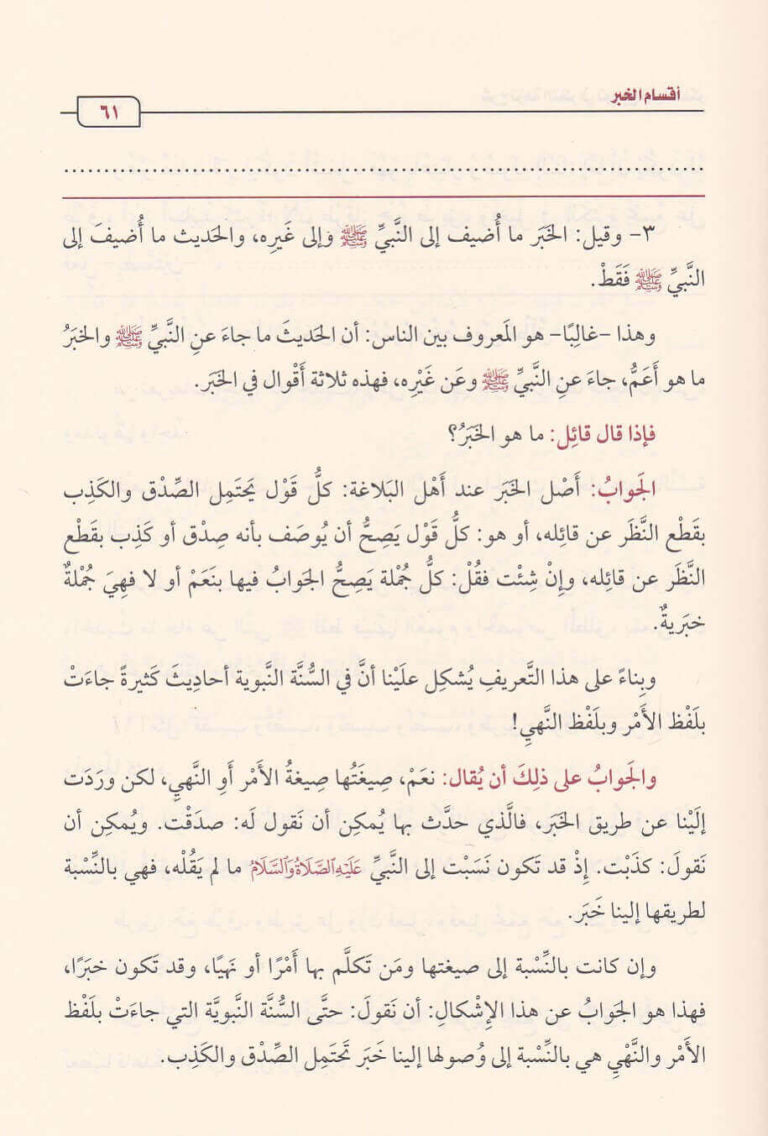 أقسام الخبر
٦١
٣- وقيل: الخَبَر ما أُضيف إلى النَّبيِّ ﷺ وَإلى غَيرِه، والحَديث ما أُضيفَ إلى
النَّبيِّ ﷺ فَقَطْ.
وهذا -غالِبًا- هو المَعروف بين الناس: أن الحَديثَ ما جاءَ عنِ النَّبيِّ ﷺ والخبَرُ
ما هو أَعَمُّ، جاءَ عنِ النَّبيِّ ﷺ وعَن غَيْرِه، فهذه ثلاثة أَقْوال في الخَبَر.
فإذا قال قائِل: ما هو الخَبَرُ؟
الجَوابُ: أَصْل الخَبَر عند أَهْل البَلاغة: كلُّ قَوْل يَحتَمِل الصِّدْق والكَذِب
بقَطْع النَّظَر عن قائِله، أو هو: كلُّ قَوْل يَصِحُّ أن يُوصَف بأنه صِدْق أو كَذِب بقَطْع
النَّظَر عن قائِله، وإِنْ شِئْت فقُلْ: كلُّ جُمْلة يَصِحُّ الجَوابُ فيها بنَعَمْ أو لا فهِيَ جُمْلةٌ
خبَريةٌ.
وبِناءً على هذا التَّعريفِ يُشكِل علَيْنا أنَّ في السُّنَّة النَّبوية أحاديثَ كَثيرةً جاءَتْ
بلَفْظ الأَمْر وبلَفْظ النَّهيِ!
والجَوابُ على ذلِكَ أن يُقال: نعَمْ، صِيغَتُها صِيغةُ الأَمْر أَوِ النَّهيِ، لكن ورَدَت
إلَيْنا عن طريق الخَبَر، فالَّذي حدَّث بها يُمكِن أن نَقول لَه: صدَقْت. ويُمكِن أن
نَقولَ: كذَبْت. إِذْ قد تَكون نَسَبْت إلى النَّبيِّ عَلَيْهِ الصَّلَاةُ وَالسَّلَامُ ما لم يَقُلْه، فهي بالنِّسْبة
لطريقها إلينا خَبَر.
وإن كانت بالنِّسْبة إلى صيغتها ومَن تَكلَّم بها أَمْرًا أو نَهيًا، وقد تَكون خبَرًا،
فهذا هو الجَوابُ عن هذا الإِشْكالِ: أن نَقولَ: حتَّى السُّنَّة النَّبويَّة التي جاءَتْ بلَفْظ
الأَمْر والنَّهْيِ هي بالنِّسْبة إلى وُصولها إلينا خَبَر تَحتَمِل الصِّدْق والكَذِب.